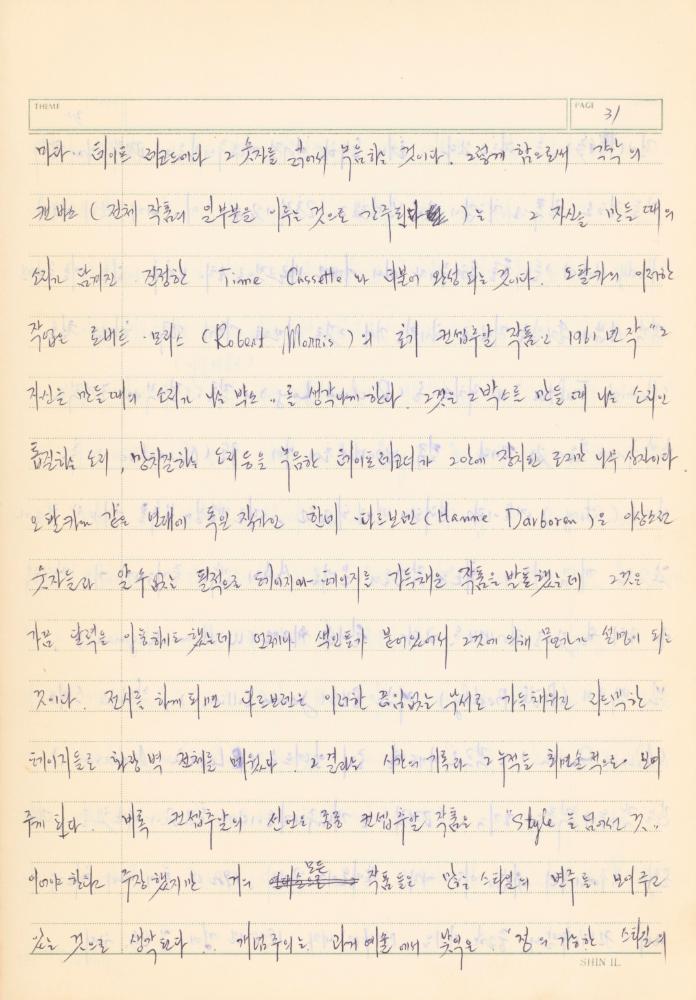 THEME
PAGE 31
마다 테이프 레코드에다 그 숫자를 읽어서 녹음하는 것이다. 그렇게 함으로써 각각의
캔버스 (전체 작품의 일부분을 이루는 것으로 간주되)는 그 자신을 만들 때의
소리가 담겨진 진정한 Time Cassette와 더불어 완성되는 것이다. 오팔카의 이러한
작업은 로버트·모리스 (Robert Morris)의 초기 컨셉츄알 작품인 1961년작 "그
자신을 만들때의 소리가 나는 박스"를 생각나게 한다. 그것은 그 박스를 만들 때 나는 소리인
톱질하는 소리, 망치질하는 소리 등을 녹음한 테이프레코더가 그 안에 장치된 조그만 나무 상자이다.
오팔카와 같은 연대에 독일 작가인 한네·다르보벤 (Hanne Darboren)은 이상스런
숫자들과 알 수 없는 필적으로 페이지와 페이지를 가득 채운 작품을 발표했는데 그것은
가끔 달력을 이용하기도 했는데 언제나 색인표가 붙어있어서 그것에 의해 무엇인가 설명이 되는
것이다. 전시를 하게 되면 다르보벤은 이러한 끊임없는 부서로 가득 채워진 자드락한
페이지들로 화랑 벽 전체를 메웠다. 그 결과는 시간의 기록과 그 누적을 회면술적으로 보여
주게 된다. 비록 컨셉츄알의 선언은 종종 컨셉츄알 작품은 "Style을 넘어선 것"
이어야 한다고 주장했지만 거의 모든 작품들은 많은 스타일의 변주를 보여주고
있는 것으로 생각된다. 개념주의는 과거 예술에서 맞먹은 "정의 가능한 스타일의
SHIN IL